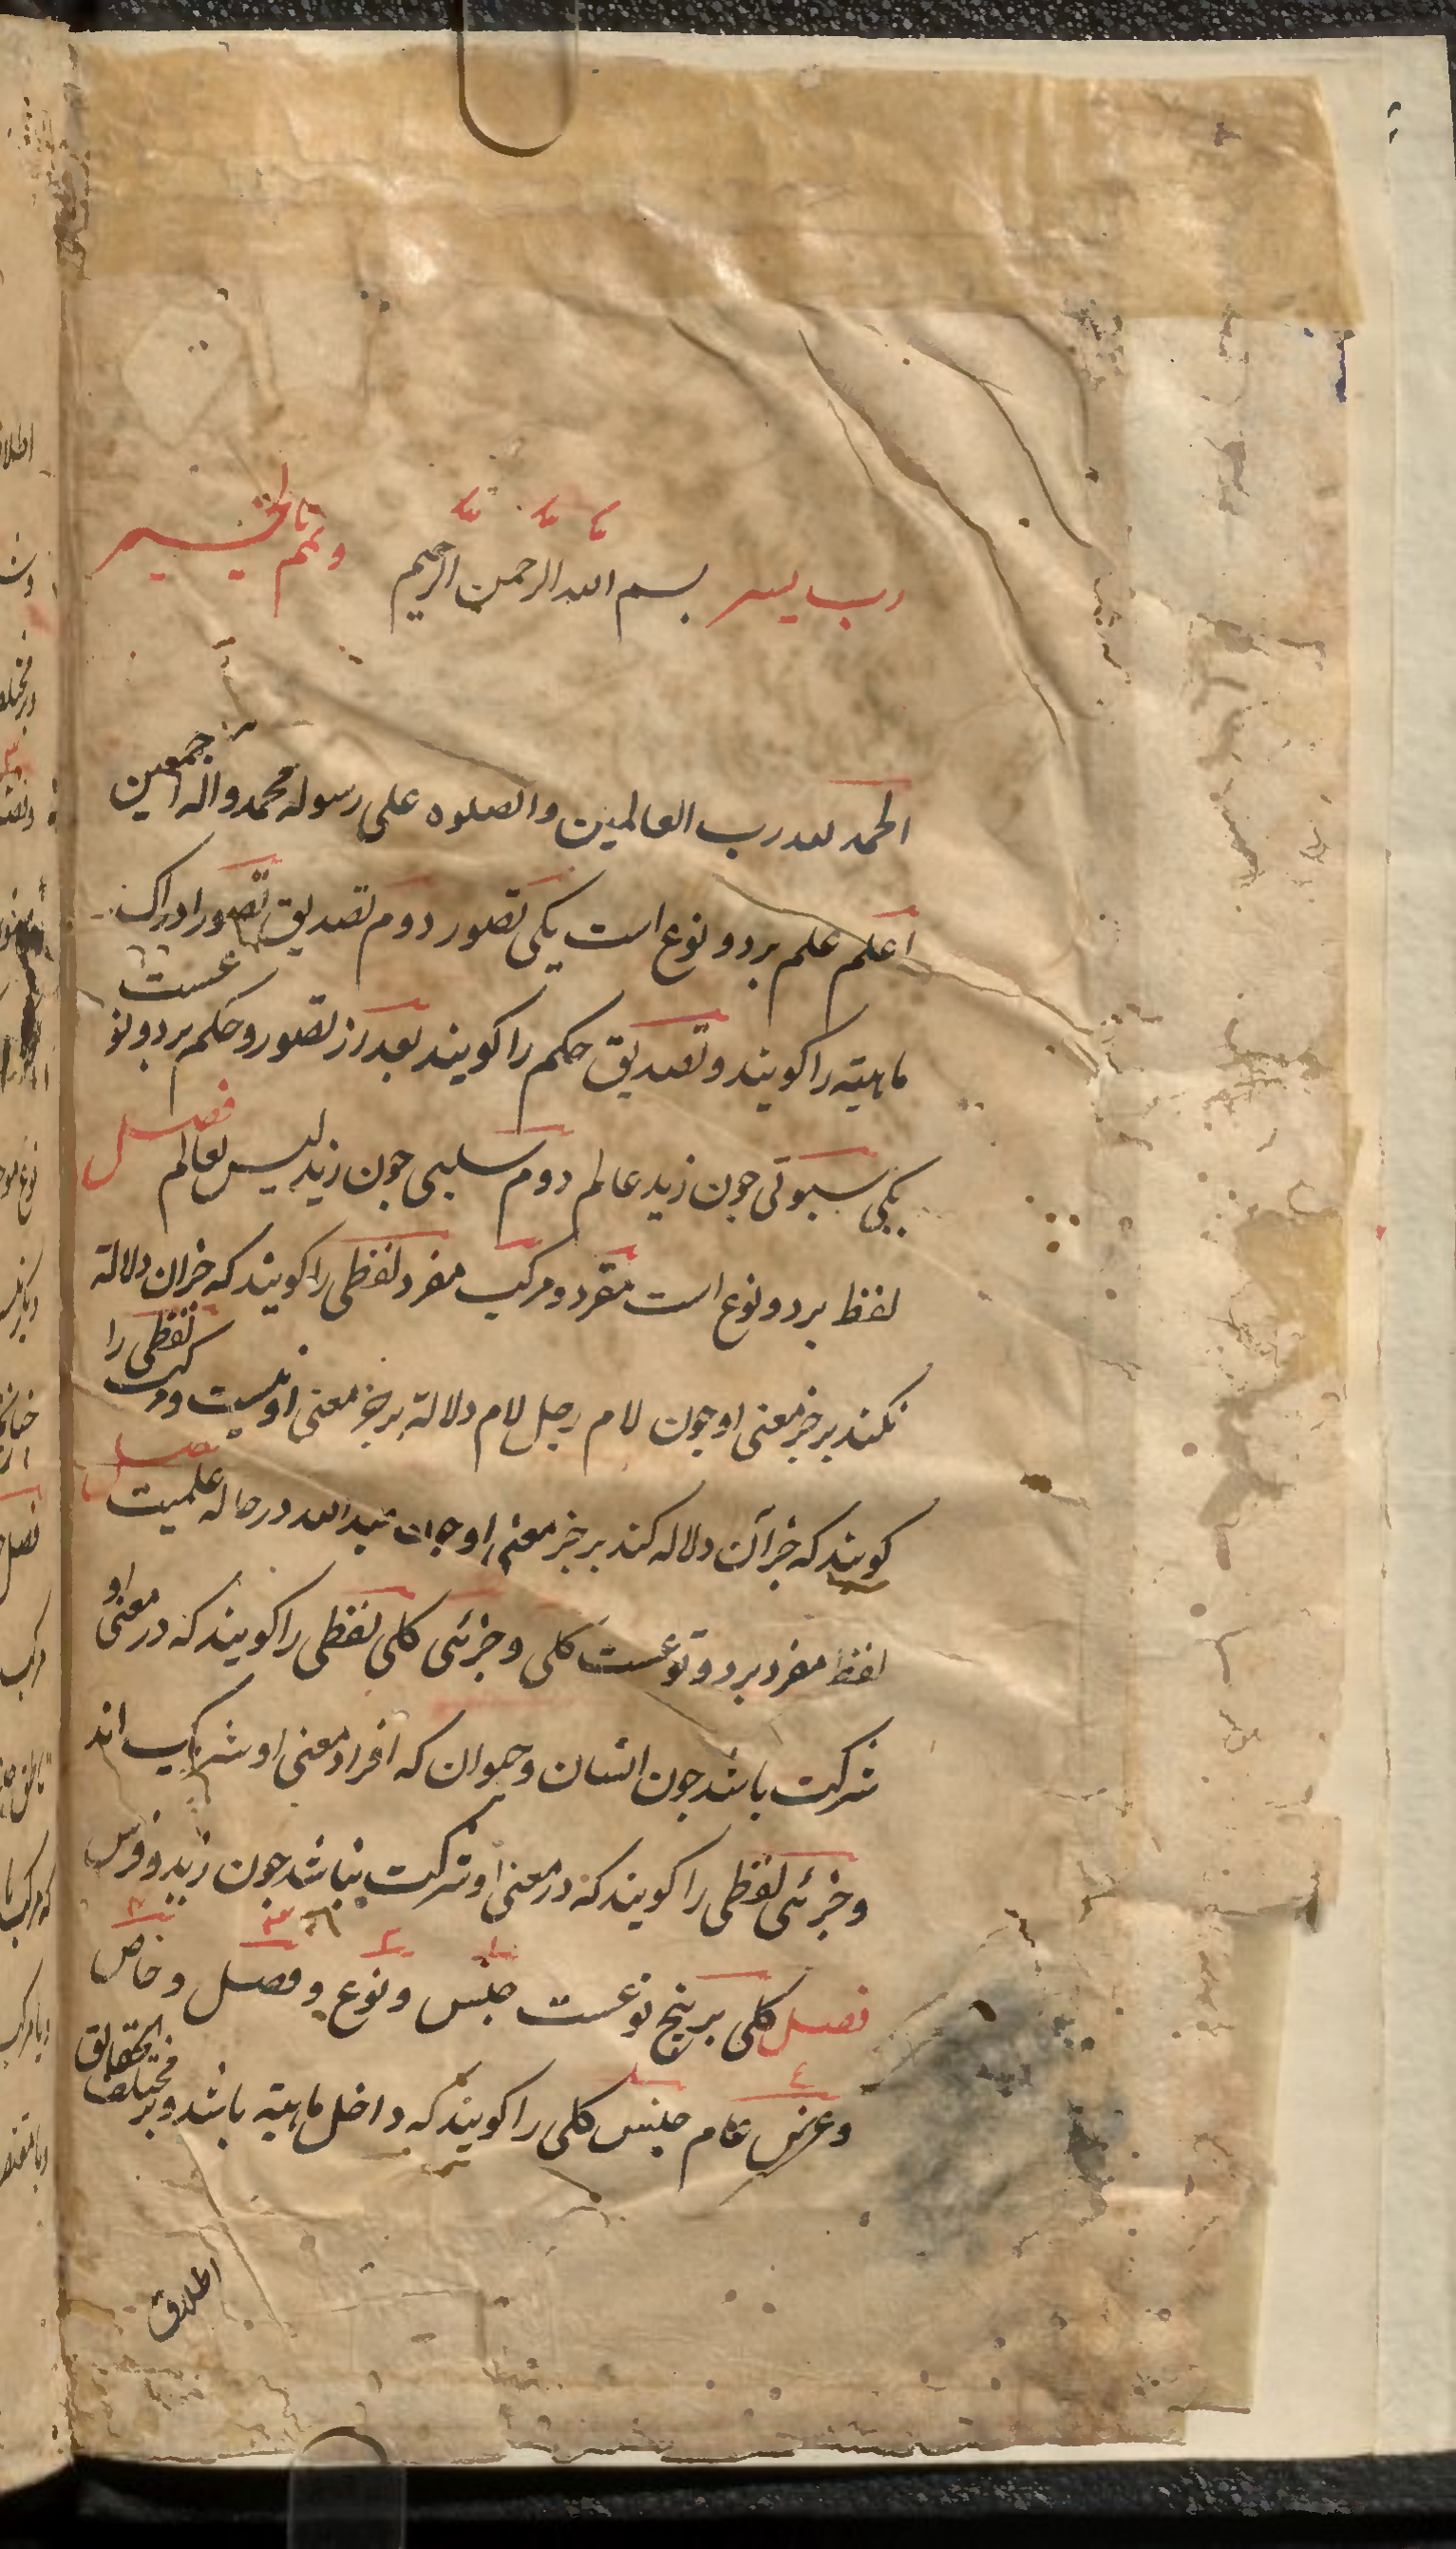 رب یسر بسم الله الرحمن الرحیم وتمم بالخیر
الحمد لله رب العالمین والصلوه علی رسوله محمد واله اجمعین
اعلم علم بر دو نوع است یکی تصور دوم تصدیق تصور ادراک
ماهیته را کویند وتصدیق حکم را کویند بعد از تصور وحکم بر دو نوعست
یکی سبوتی جون زید عالم دوم سلبی جون زید لیس بعالم فصل
لفظ بر دو نوع است مفرد ومرکب مفرد لفظی را کویند که جزان دلالة
نکند بر جز معنی او جون لام رجل لام دلالة بر جز معنی او نیست ومرکب لفظی را
کویند که جز آن دلاله کند بر جز معنی او جون عبدالله در حاله علمیت فصل
لفظ مفرد بر دو نوعست کلی وجزئی کلی لفظی را کویند که در معنی او
شرکت باشد جون انسان وحیوان که افراد معنی او شریک اند
وجزئی لفظی را کویند که در معنی او شرکت نباشد جون زید وفرس
فصل کلی بر پنج نوعست جنس ونوع وفصل وخاص
وعرض عام جنس کلی را کویند که داخل ماهیته باشد وبر مختلف الحقایق
اطلاق